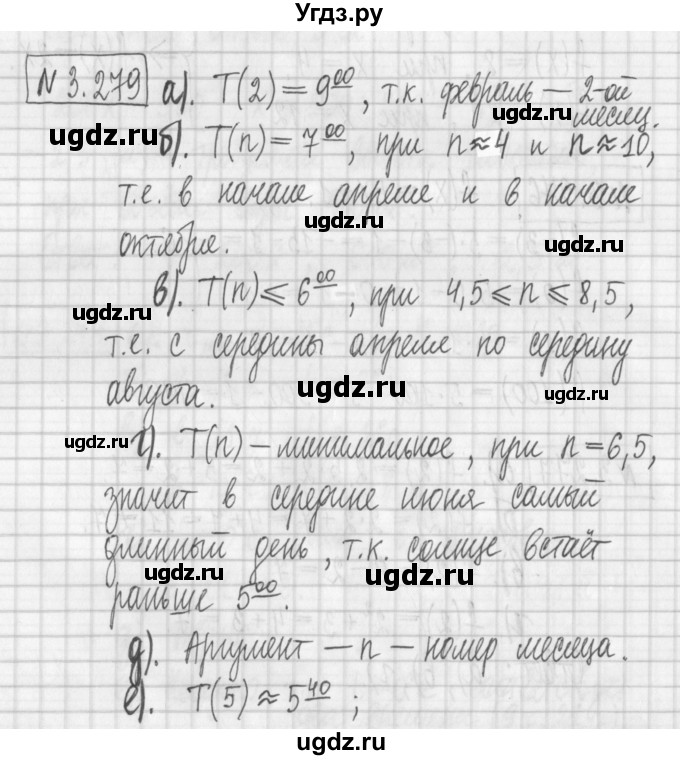 Угдз.ру
N 3.279 а). T(2) = 9⁰⁰, т.к. февраль — 2-ой
ugdz.ru месяц.
б). T(n) = 7⁰⁰, при n ≈ 4 и n ≈ 10,
т.е. в начале апреля и в начале
ugdz.ru
октября. ugdz.ru
в). T(n) ⩽ 6⁰⁰, при 4,5 ⩽ n ⩽ 8,5,
ugdz.ru
т.е. с середины апреля по середину
августа. ugdz.ru ugdz.ru
ugdz.ru г). T(n) – минимальное, при n = 6,5,
значит в середине июня самый
длинный день, т.к. солнце встаёт
ugdz.ru ugdz.ru
раньше 5⁰⁰.
д). Аргумент — n – номер месяца.
е). T(5) ≈ 5⁴⁰ ;
ugdz.ru